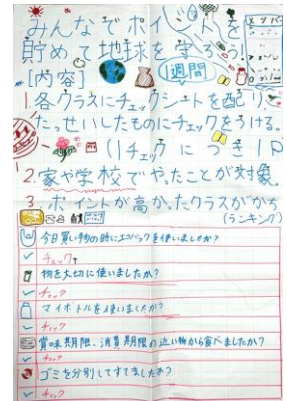 みんなでポイントを
貯めて地球を守ろう!
[内容]
1週間
1.各クラスにチェックシートを配り
たっせいしたものにチェックをつける。
(1チェックにつき1P
2.家や学校でやったことが対象。
3 ポイントが高かったクラスがかち
(ランキング)
今日買い物の時にエコバックを使いましたか?
チェック
物を大切に使いましたか?
チェック
マイボトルを使いましたか?
チェック
賞味期限、消費期限の近い物から食べましたか?
チェック
ゴミを分別してすてましたか?
チェック